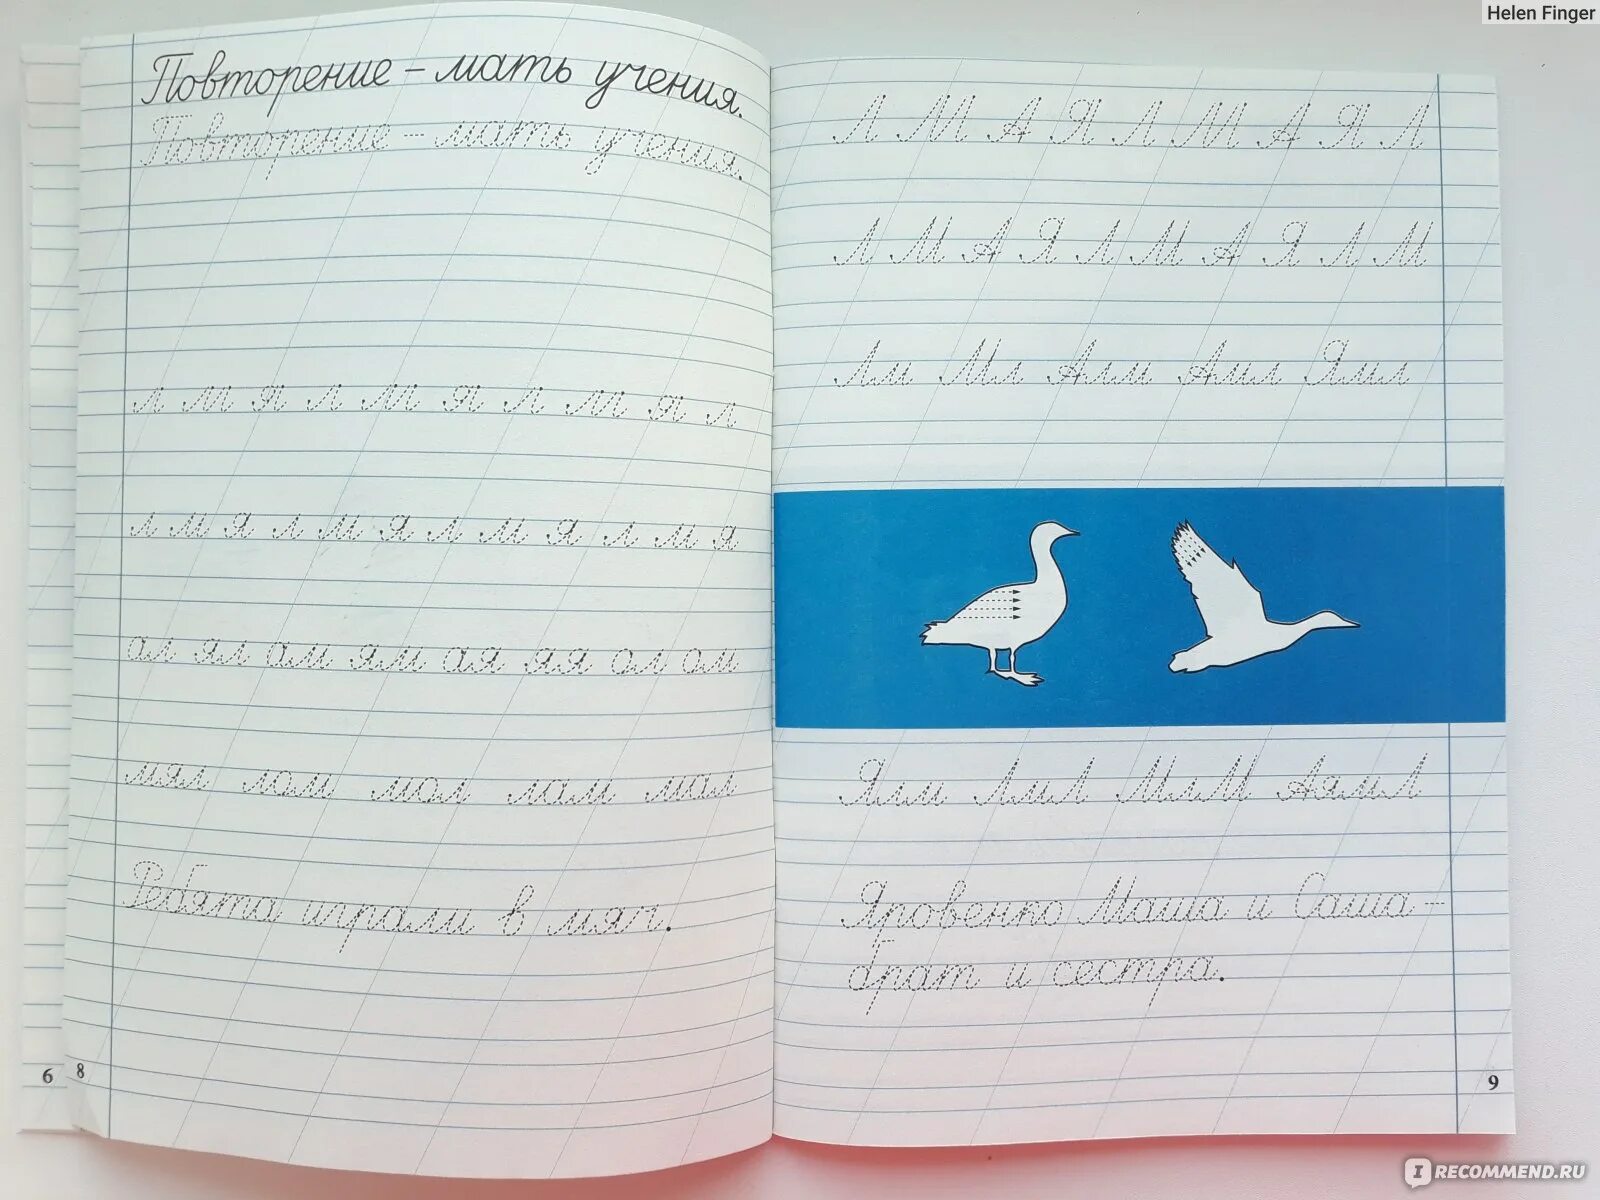 Helen Finger
Повторение – мать учения.
Повторение – мать учения.
л м я л м я л м я л
л м я л м я л м я л м я
ал ял ам ям ая яя ол ом
мял лом мол лам мал
Ребята играли в мяч.
6 8
Л М А Я Л М А Я Л
Л М А Я Л М А Я Л М
Лм Мл Алм Амл Ямл
Ялм ЛмЛ МлМ АямЛ
Яровенко Маша и Саша –
брат и сестра.
9
IRECOMMEND.RU